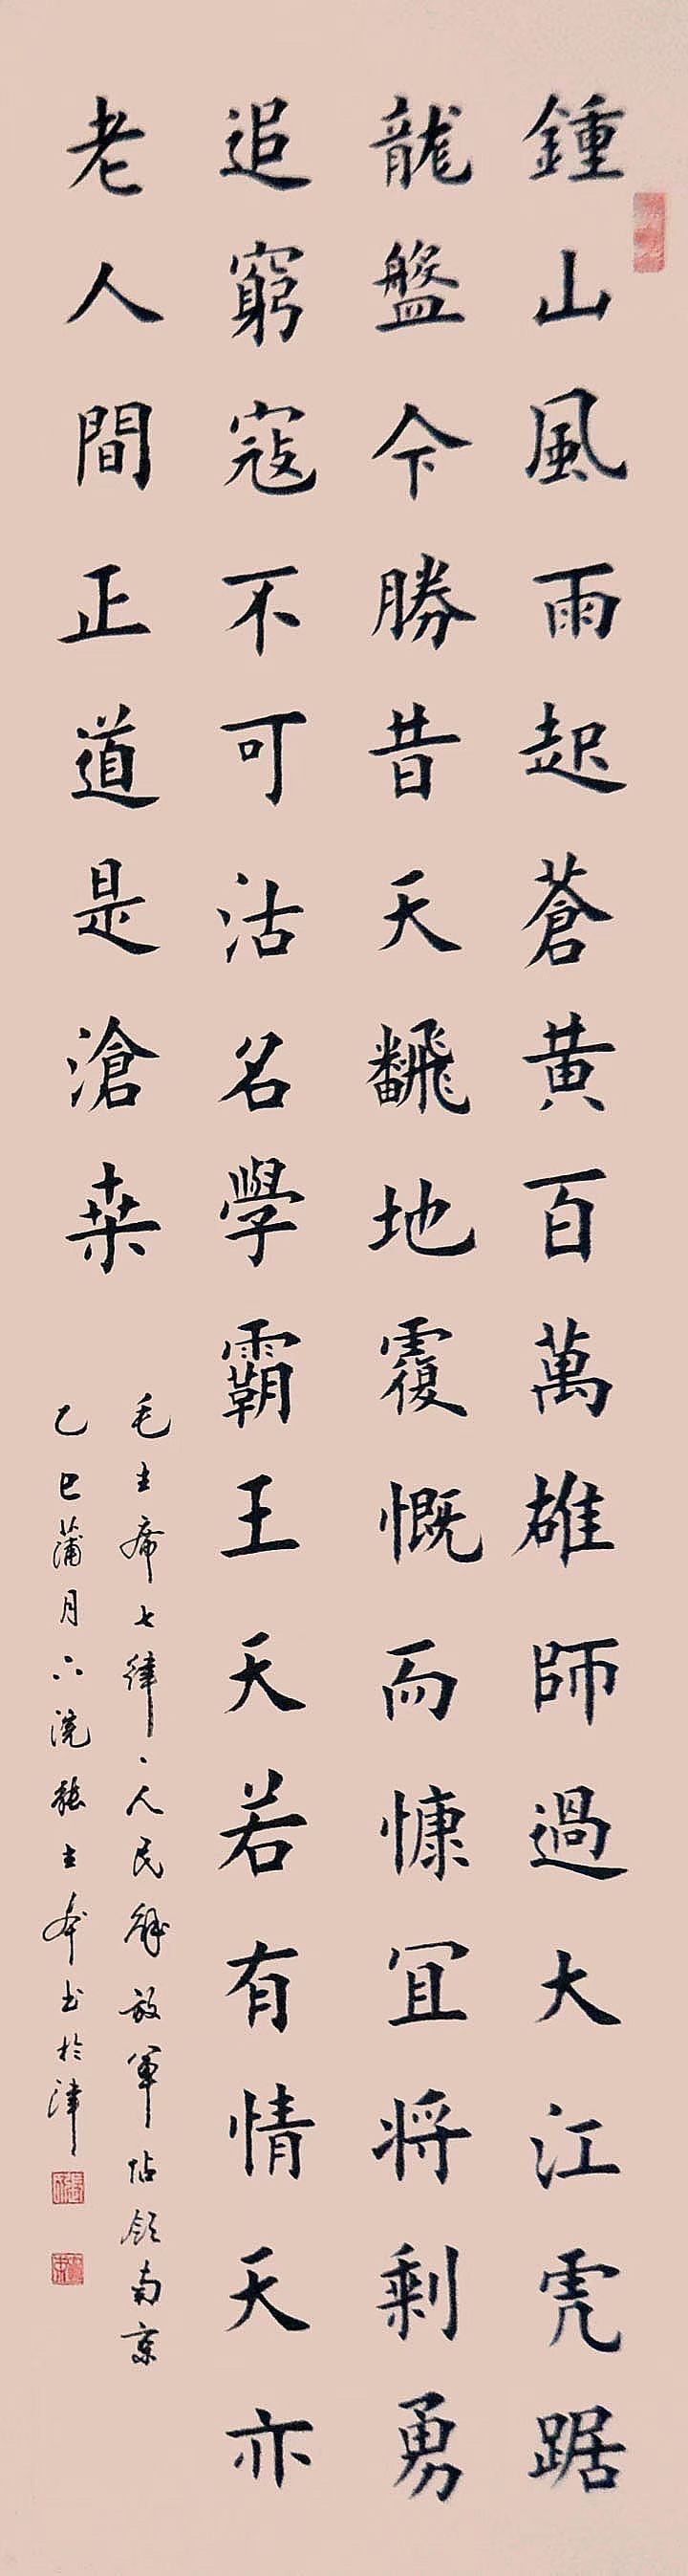 鍾山風雨起蒼黄百萬雄師過大江虎踞
龍盤今勝昔天飜地覆慨而慷宜将剩勇
追窮寇不可沽名學霸王天若有情天亦
老人間正道是滄桒
毛主席七律、人民解放軍佔領南京
乙巳蒲月六浣張主奉书於津